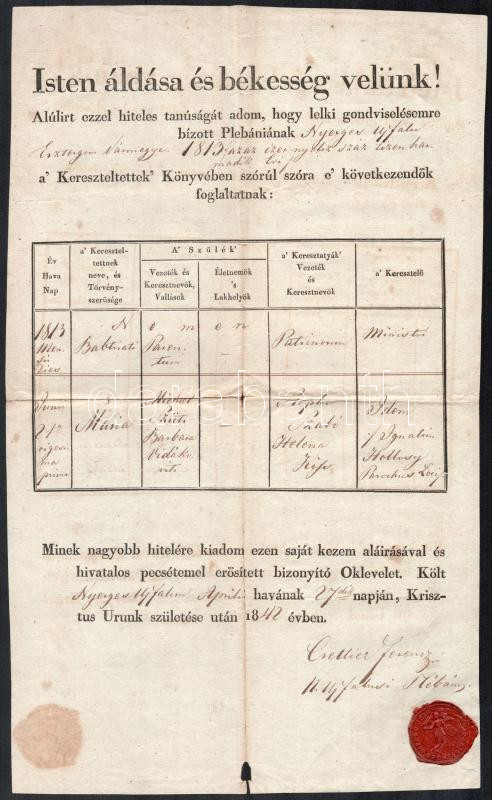 Isten áldása és békesség velünk!
Alúlirt ezzel hiteles tanúságát adom, hogy lelki gondviselésemre
bízott Plebániának Nyerges Ujfalu
Esztergom Vármegye 1813 azaz ezer nyoltz száz tizen har
madik évi
a' Kereszteltettek' Könyvében szórúl szóra e' következendők
foglaltatnak:
Év
Hava
Nap
a' Keresztel-
tettnek
neve, és
Törvény-
szerüsége
A' Szülék'
Vezeték és
Keresztnevök,
Vallások
Életnemök
's
Lakhelyök
a' Keresztatyák'
Vezeték
és
Keresztnevök
a' Keresztelő
1813
Men-
sis
Dies
N o m e n
Babtisati
Paren-
tum
Patrinorum
Ministri
Junii
21ma
vigesi
ma
prima
Mária
Michael
Szüts
Barbara
Vidáko-
vits
Szabó
Helena
Kiss
Idem
Ignatius
Hollosy
Parochus Loci
darabanth
Minek nagyobb hitelére kiadom ezen saját kezem aláirásával és
hivatalos pecsétemel erösitett bizonyitó Oklevelet. Költ
Nyerges Ujfalun Április havának 27dik napján, Krisz-
tus Urunk születése után 1842 évben.
Ferencz
N. Ujfalusi Plébános